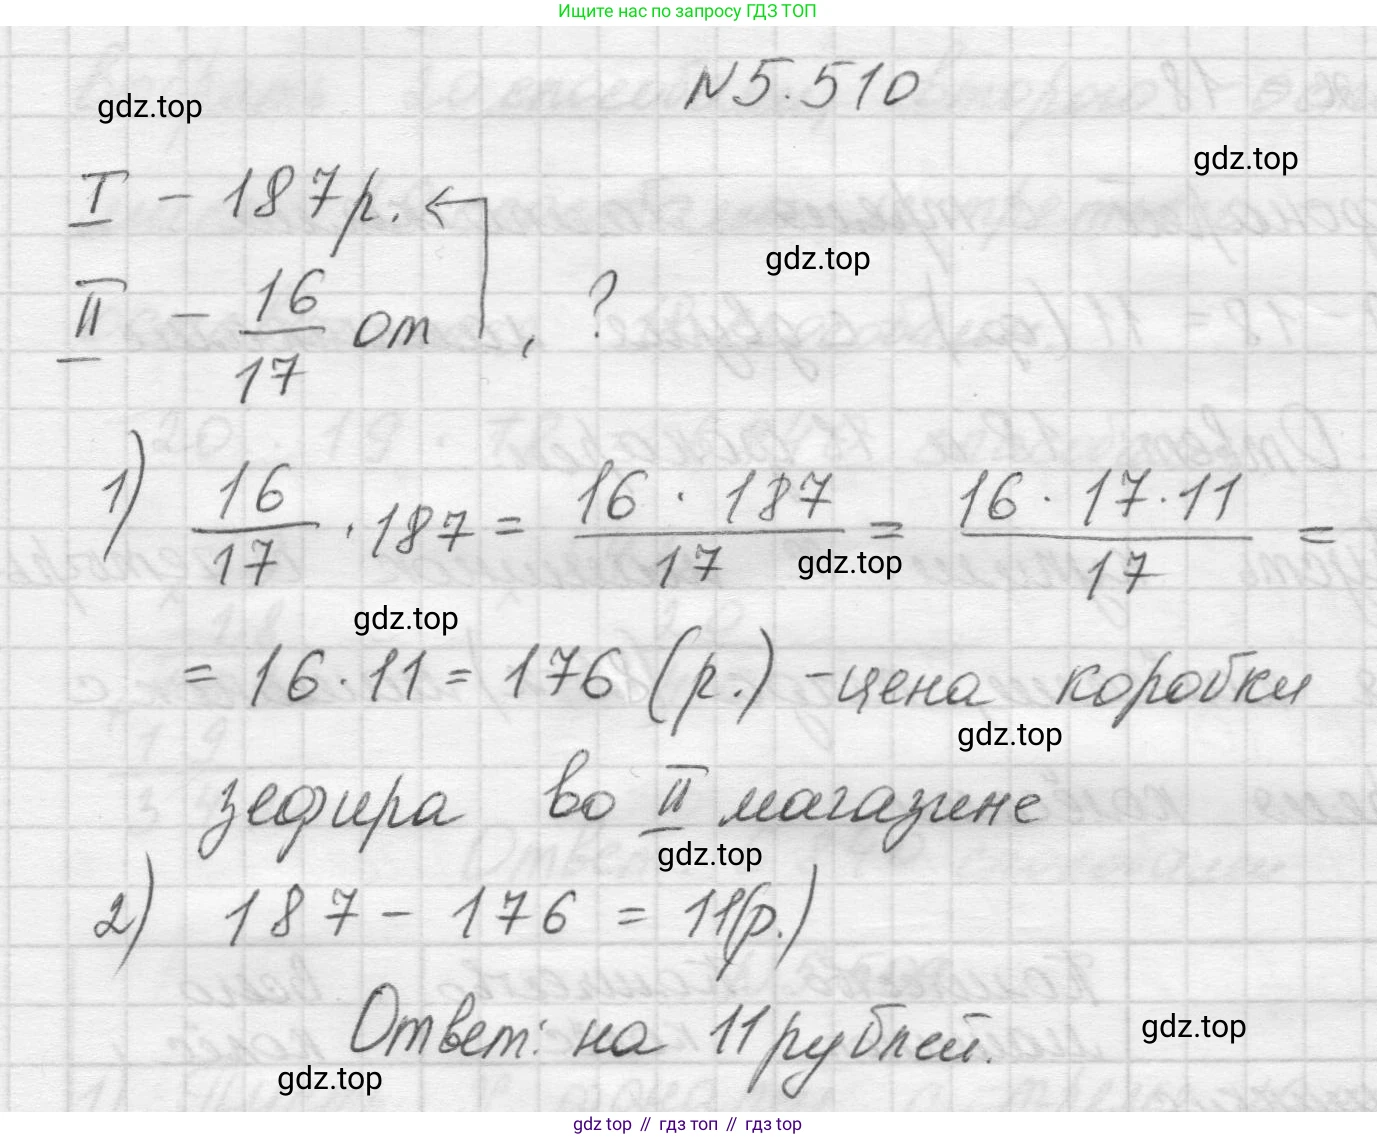 Ищите нас по запросу ГДЗ ТОП
N 5.510
gdz.top
gdz.top
I – 187 р.
gdz.top
II – 16/17 от , ?
1) 16/17 · 187 = 16 · 187/17 = 16 · 17 · 11/17 =
gdz.top
gdz.top
= 16 · 11 = 176 (р.) – цена коробки
gdz.top
зефира во II магазине
gdz.top
2) 187 – 176 = 11 (р.)
Ответ: на 11 рублей.
gdz.top
gdz.top
gdz top // гдз топ // гдз top